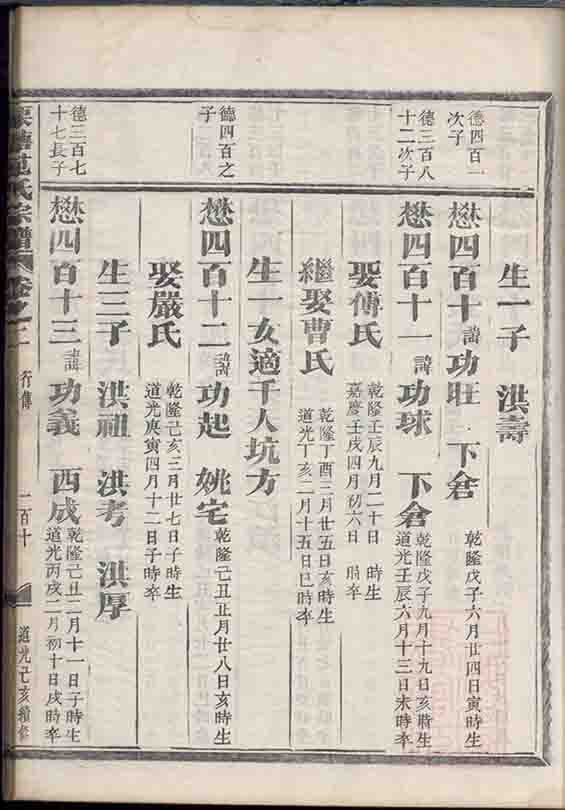 生一子 洪壽
德四百一次子
懋四百十 諱 功旺 下倉 乾隆戊子六月廿四日寅時生
德三百八十二次子
懋四百十一 諱 功球 下倉 乾隆戊子九月十九日亥時生 道光壬辰六月十三日未時卒
娶傅氏 乾隆壬辰九月二十日 時生 嘉慶壬戌四月初六日 時卒
繼娶曹氏 乾隆丁酉三月廿五日亥時生 道光丁亥二月十五日巳時卒
生一女適千人坑方
德四百之子
懋四百十二 諱 功起 姚宅 乾隆己丑正月廿八日亥時生
娶嚴氏 乾隆己亥三月廿七日子時生 道光庚寅四月十二日子時卒
生三子 洪祖 洪考 洪厚
德三百七十七長子
懋四百十三 諱 功義 西成 乾隆己丑二月十一日子時生 道光丙戌二月初十日戌時卒
氏宗譜 卷之二 行傳 二百十 道光己亥續修